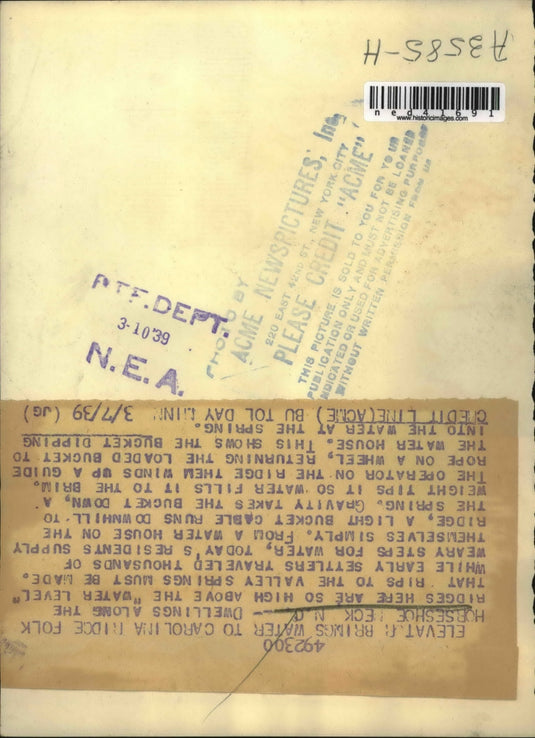 A3585-H
ned41691
www.historicimages.com
PHOTO BY
ACME NEWSPICTURES, Inc.
220 EAST 42ND ST., NEW YORK CITY
PLEASE CREDIT "ACME"
THIS PICTURE IS SOLD TO YOU FOR YOUR
PUBLICATION ONLY AND MUST NOT BE LOANED
INDICATED OR USED FOR ADVERTISING PURPOSES
WITHOUT WRITTEN PERMISSION FROM US
REF. DEPT.
3-10'39
N.E.A.
492300
ELEVATOR BRINGS WATER TO CAROLINA RIDGE FOLK
HORSESHOE NECK, N.C. -- DWELLINGS ALONG THE
RIDGES HERE ARE SO HIGH ABOVE THE "WATER LEVEL"
THAT RIPS TO THE VALLEY SPRINGS MUST BE MADE.
WHILE EARLY SETTLERS TRAVELED THOUSANDS OF
WEARY STEPS FOR WATER, TODAY'S RESIDENTS SUPPLY
THEMSELVES SIMPLY. FROM A WATER HOUSE ON THE
RIDGE, A LIGHT BUCKET CABLE RUNS DOWNHILL TO
THE SPRING. GRAVITY TAKES THE BUCKET DOWN, A
WEIGHT TIPS IT SO WATER FILLS IT TO THE BRIM.
THE OPERATOR ON THE RIDGE THEM WINDS UP A GUIDE
ROPE ON A WHEEL, RETURNING THE LOADED BUCKET TO
THE WATER HOUSE. THIS SHOWS THE BUCKET DIPPING
INTO THE WATER AT THE SPRING.
CREDIT LINE (ACME) BU TOL DAY MINN 3/7/39 (JG)